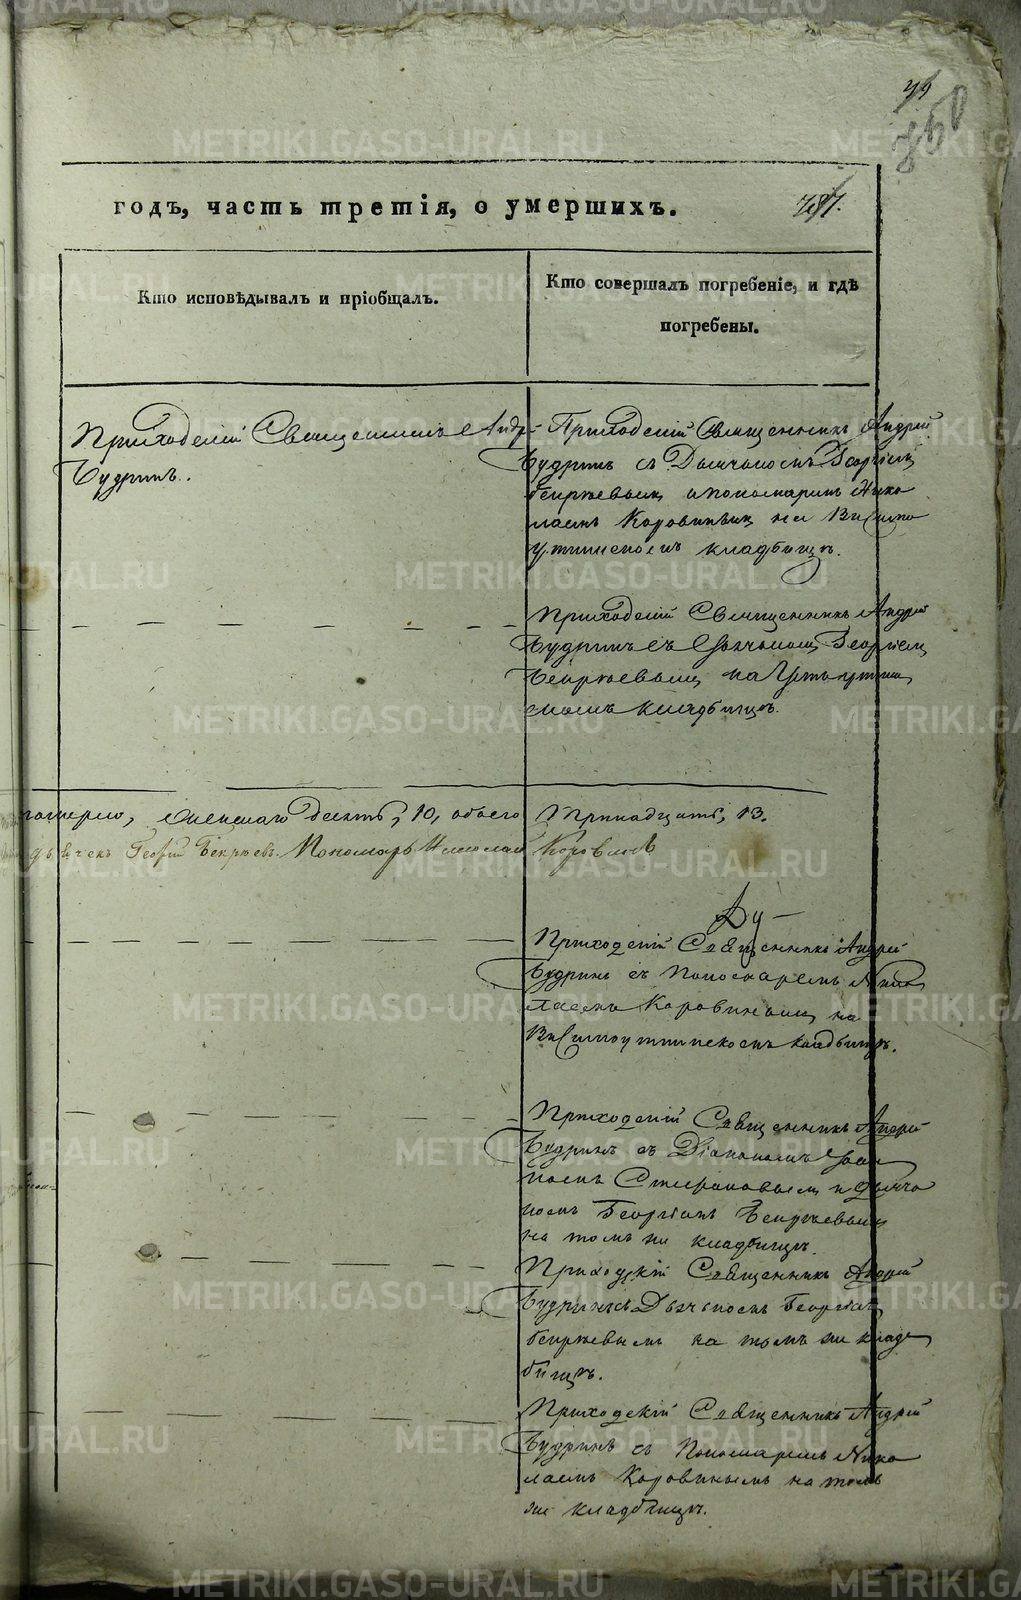 годъ, часть третія, о умершихъ.
Кто исповѣдывалъ и пріобщалъ.
Кто совершалъ погребеніе, и гдѣ
погребены.
Приходскій Священникъ Андрей
Будринъ.
Приходскій Священникъ Андрей
Будринъ съ Дьячкомъ Георгіемъ
Бекряевымъ и пономаремъ Нико
лаемъ Коровинымъ на Висимо
уткинскомъ кладбищѣ.
Приходскій Священникъ Андрей
Будринъ съ Дьячкомъ Георгіемъ
Бекряевымъ на
кладбищѣ.
10, обоего Тринадцать, 13.
Георгій Бекряевъ. Пономарь Николай Коровинъ
Приходскій Священникъ Андрей
Будринъ съ Пономаремъ Нико
лаемъ Коровинымъ на
Висимоуткинскомъ кладбищѣ.
Приходскій Священникъ Андрей
Будринъ съ Діакономъ Іоан
номъ и Дьячко
мъ Георгіемъ Бекряевымъ
на томъ же кладбищѣ.
Приходскій Священникъ Андрей
Будринъ съ Дьячкомъ Георгіемъ
Бекряевымъ на томъ же клад
бищѣ.
Приходскій Священникъ Андрей
Будринъ съ Пономаремъ Нико
лаемъ Коровинымъ на томъ
же кладбищѣ.
METRIKI.GASO-URAL.RU